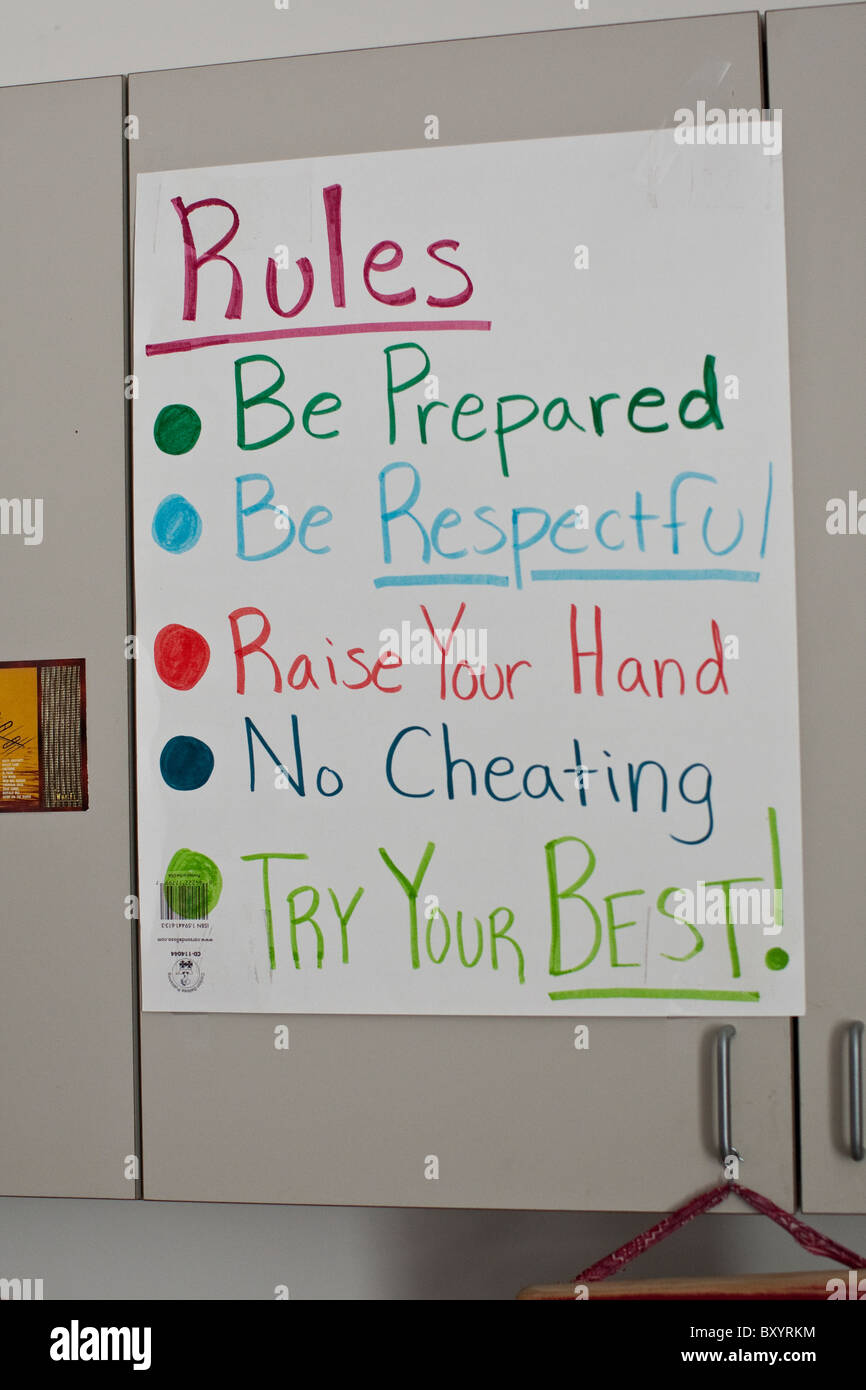 Rules
Be Prepared
Be Respectful
Raise Your Hand
No Cheating
TRY YOUR BEST!
CD-114044
alamy
Image ID: BXYRKM
www.alamy.com